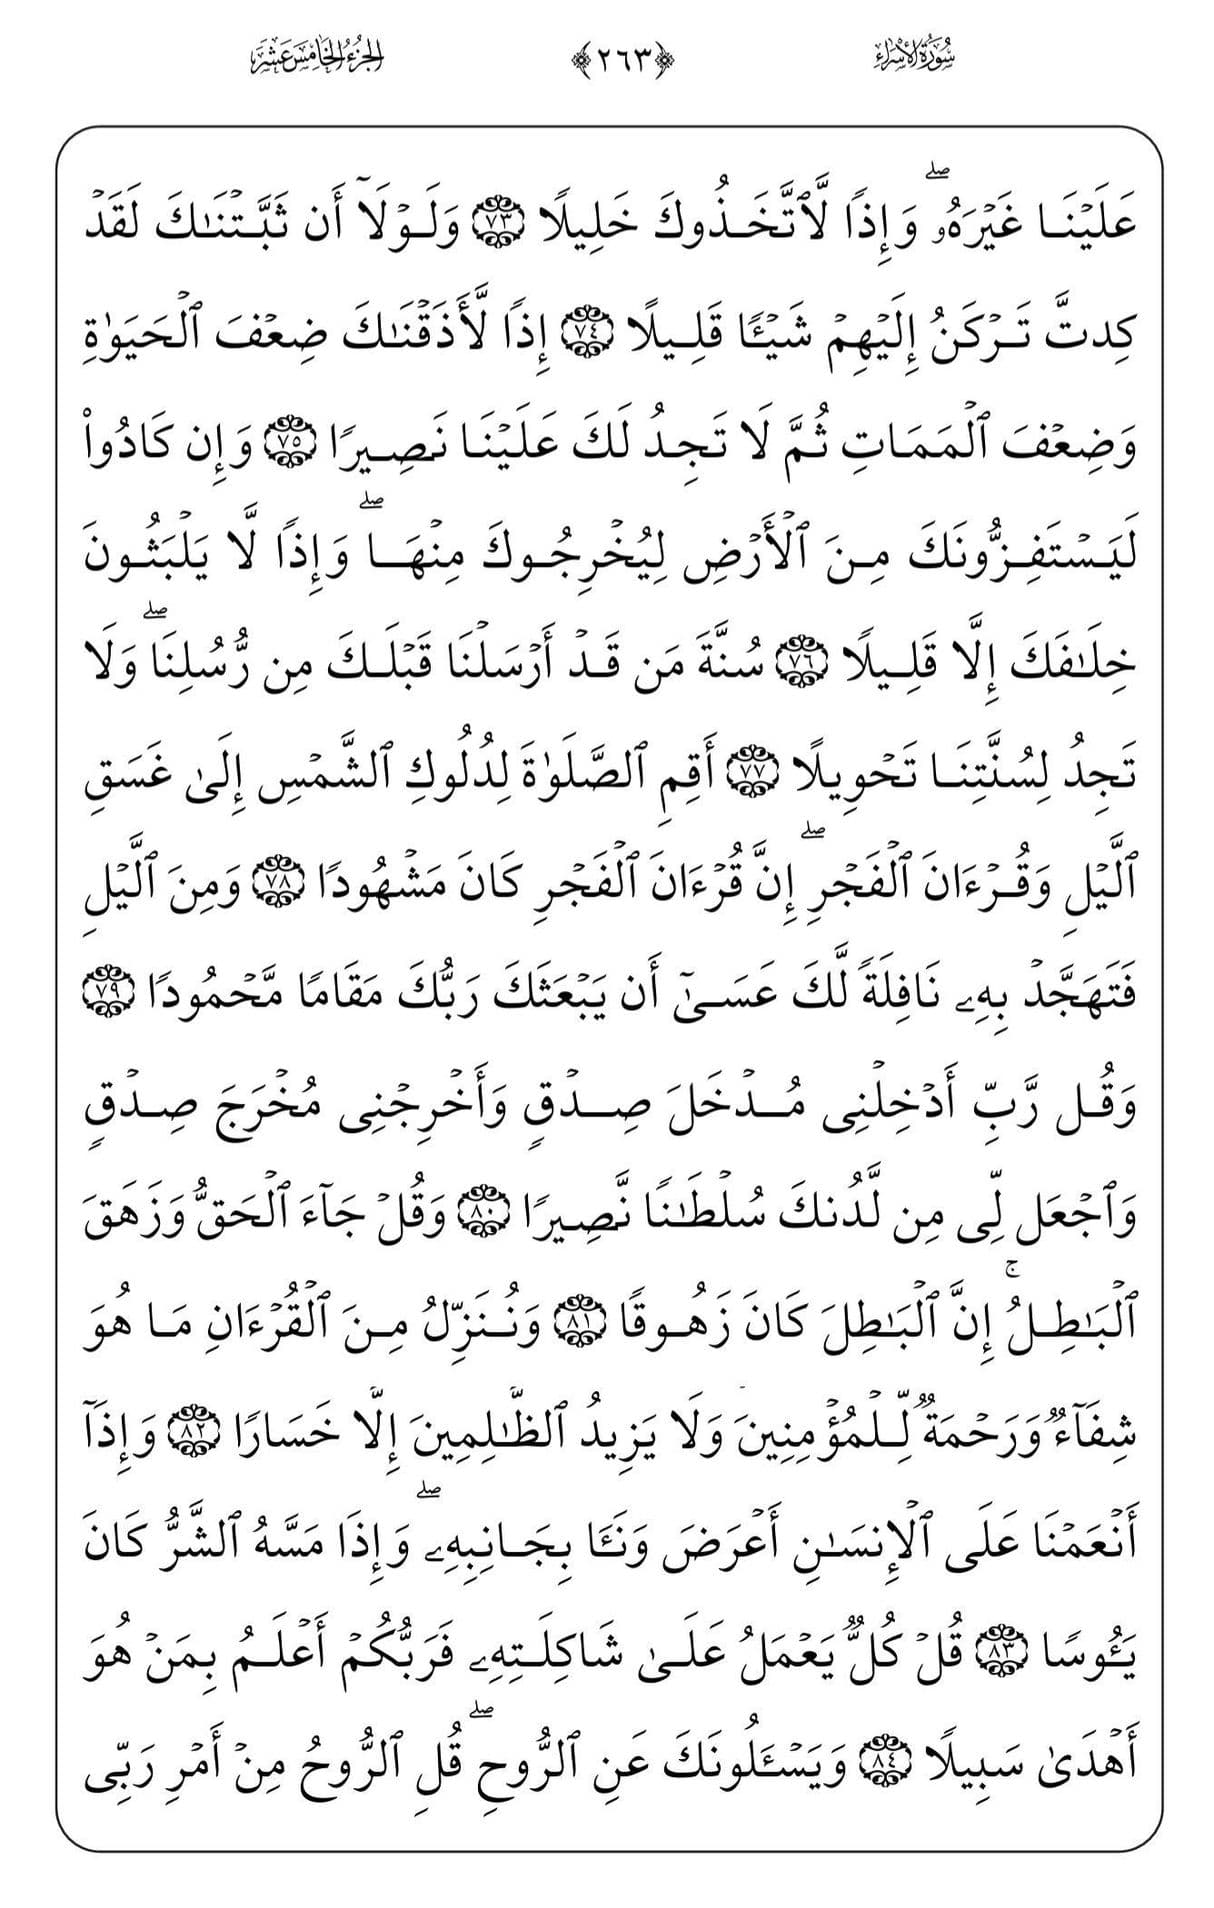 سُورَةُ الإِسْرَاءِ ﴿٢٦٣﴾ الجُزْءُ الخَامِسَ عَشَرَ
عَلَيۡنَا غَيۡرَهُۥۖ وَإِذٗا لَّٱتَّخَذُوكَ خَلِيلٗا ٧٣ وَلَوۡلَآ أَن ثَبَّتۡنَٰكَ لَقَدۡ
كِدتَّ تَرۡكَنُ إِلَيۡهِمۡ شَيۡـٔٗا قَلِيلًا ٧٤ إِذٗا لَّأَذَقۡنَٰكَ ضِعۡفَ ٱلۡحَيَوٰةِ
وَضِعۡفَ ٱلۡمَمَاتِ ثُمَّ لَا تَجِدُ لَكَ عَلَيۡنَا نَصِيرٗا ٧٥ وَإِن كَادُواْ
لَيَسۡتَفِزُّونَكَ مِنَ ٱلۡأَرۡضِ لِيُخۡرِجُوكَ مِنۡهَاۖ وَإِذٗا لَّا يَلۡبَثُونَ
خِلَٰفَكَ إِلَّا قَلِيلٗا ٧٦ سُنَّةَ مَن قَدۡ أَرۡسَلۡنَا قَبۡلَكَ مِن رُّسُلِنَاۖ وَلَا
تَجِدُ لِسُنَّتِنَا تَحۡوِيلًا ٧٧ أَقِمِ ٱلصَّلَوٰةَ لِدُلُوكِ ٱلشَّمۡسِ إِلَىٰ غَسَقِ
ٱلَّيۡلِ وَقُرۡءَانَ ٱلۡفَجۡرِۖ إِنَّ قُرۡءَانَ ٱلۡفَجۡرِ كَانَ مَشۡهُودٗا ٧٨ وَمِنَ ٱلَّيۡلِ
فَتَهَجَّدۡ بِهِۦ نَافِلَةٗ لَّكَ عَسَىٰٓ أَن يَبۡعَثَكَ رَبُّكَ مَقَامٗا مَّحۡمُودٗا ٧٩
وَقُل رَّبِّ أَدۡخِلۡنِي مُدۡخَلَ صِدۡقٖ وَأَخۡرِجۡنِي مُخۡرَجَ صِدۡقٖ
وَٱجۡعَل لِّي مِن لَّدُنكَ سُلۡطَٰنٗا نَّصِيرٗا ٨٠ وَقُلۡ جَآءَ ٱلۡحَقُّ وَزَهَقَ
ٱلۡبَٰطِلُۚ إِنَّ ٱلۡبَٰطِلَ كَانَ زَهُوقٗا ٨١ وَنُنَزِّلُ مِنَ ٱلۡقُرۡءَانِ مَا هُوَ
شِفَآءٞ وَرَحۡمَةٞ لِّلۡمُؤۡمِنِينَ وَلَا يَزِيدُ ٱلظَّٰلِمِينَ إِلَّا خَسَارٗا ٨٢ وَإِذَآ
أَنۡعَمۡنَا عَلَى ٱلۡإِنسَٰنِ أَعۡرَضَ وَنَـَٔا بِجَانِبِهِۦۖ وَإِذَا مَسَّهُ ٱلشَّرُّ كَانَ
يَـُٔوسٗا ٨٣ قُلۡ كُلّٞ يَعۡمَلُ عَلَىٰ شَاكِلَتِهِۦ فَرَبُّكُمۡ أَعۡلَمُ بِمَنۡ هُوَ
أَهۡدَىٰ سَبِيلٗا ٨٤ وَيَسۡـَٔلُونَكَ عَنِ ٱلرُّوحِۖ قُلِ ٱلرُّوحُ مِنۡ أَمۡرِ رَبِّي